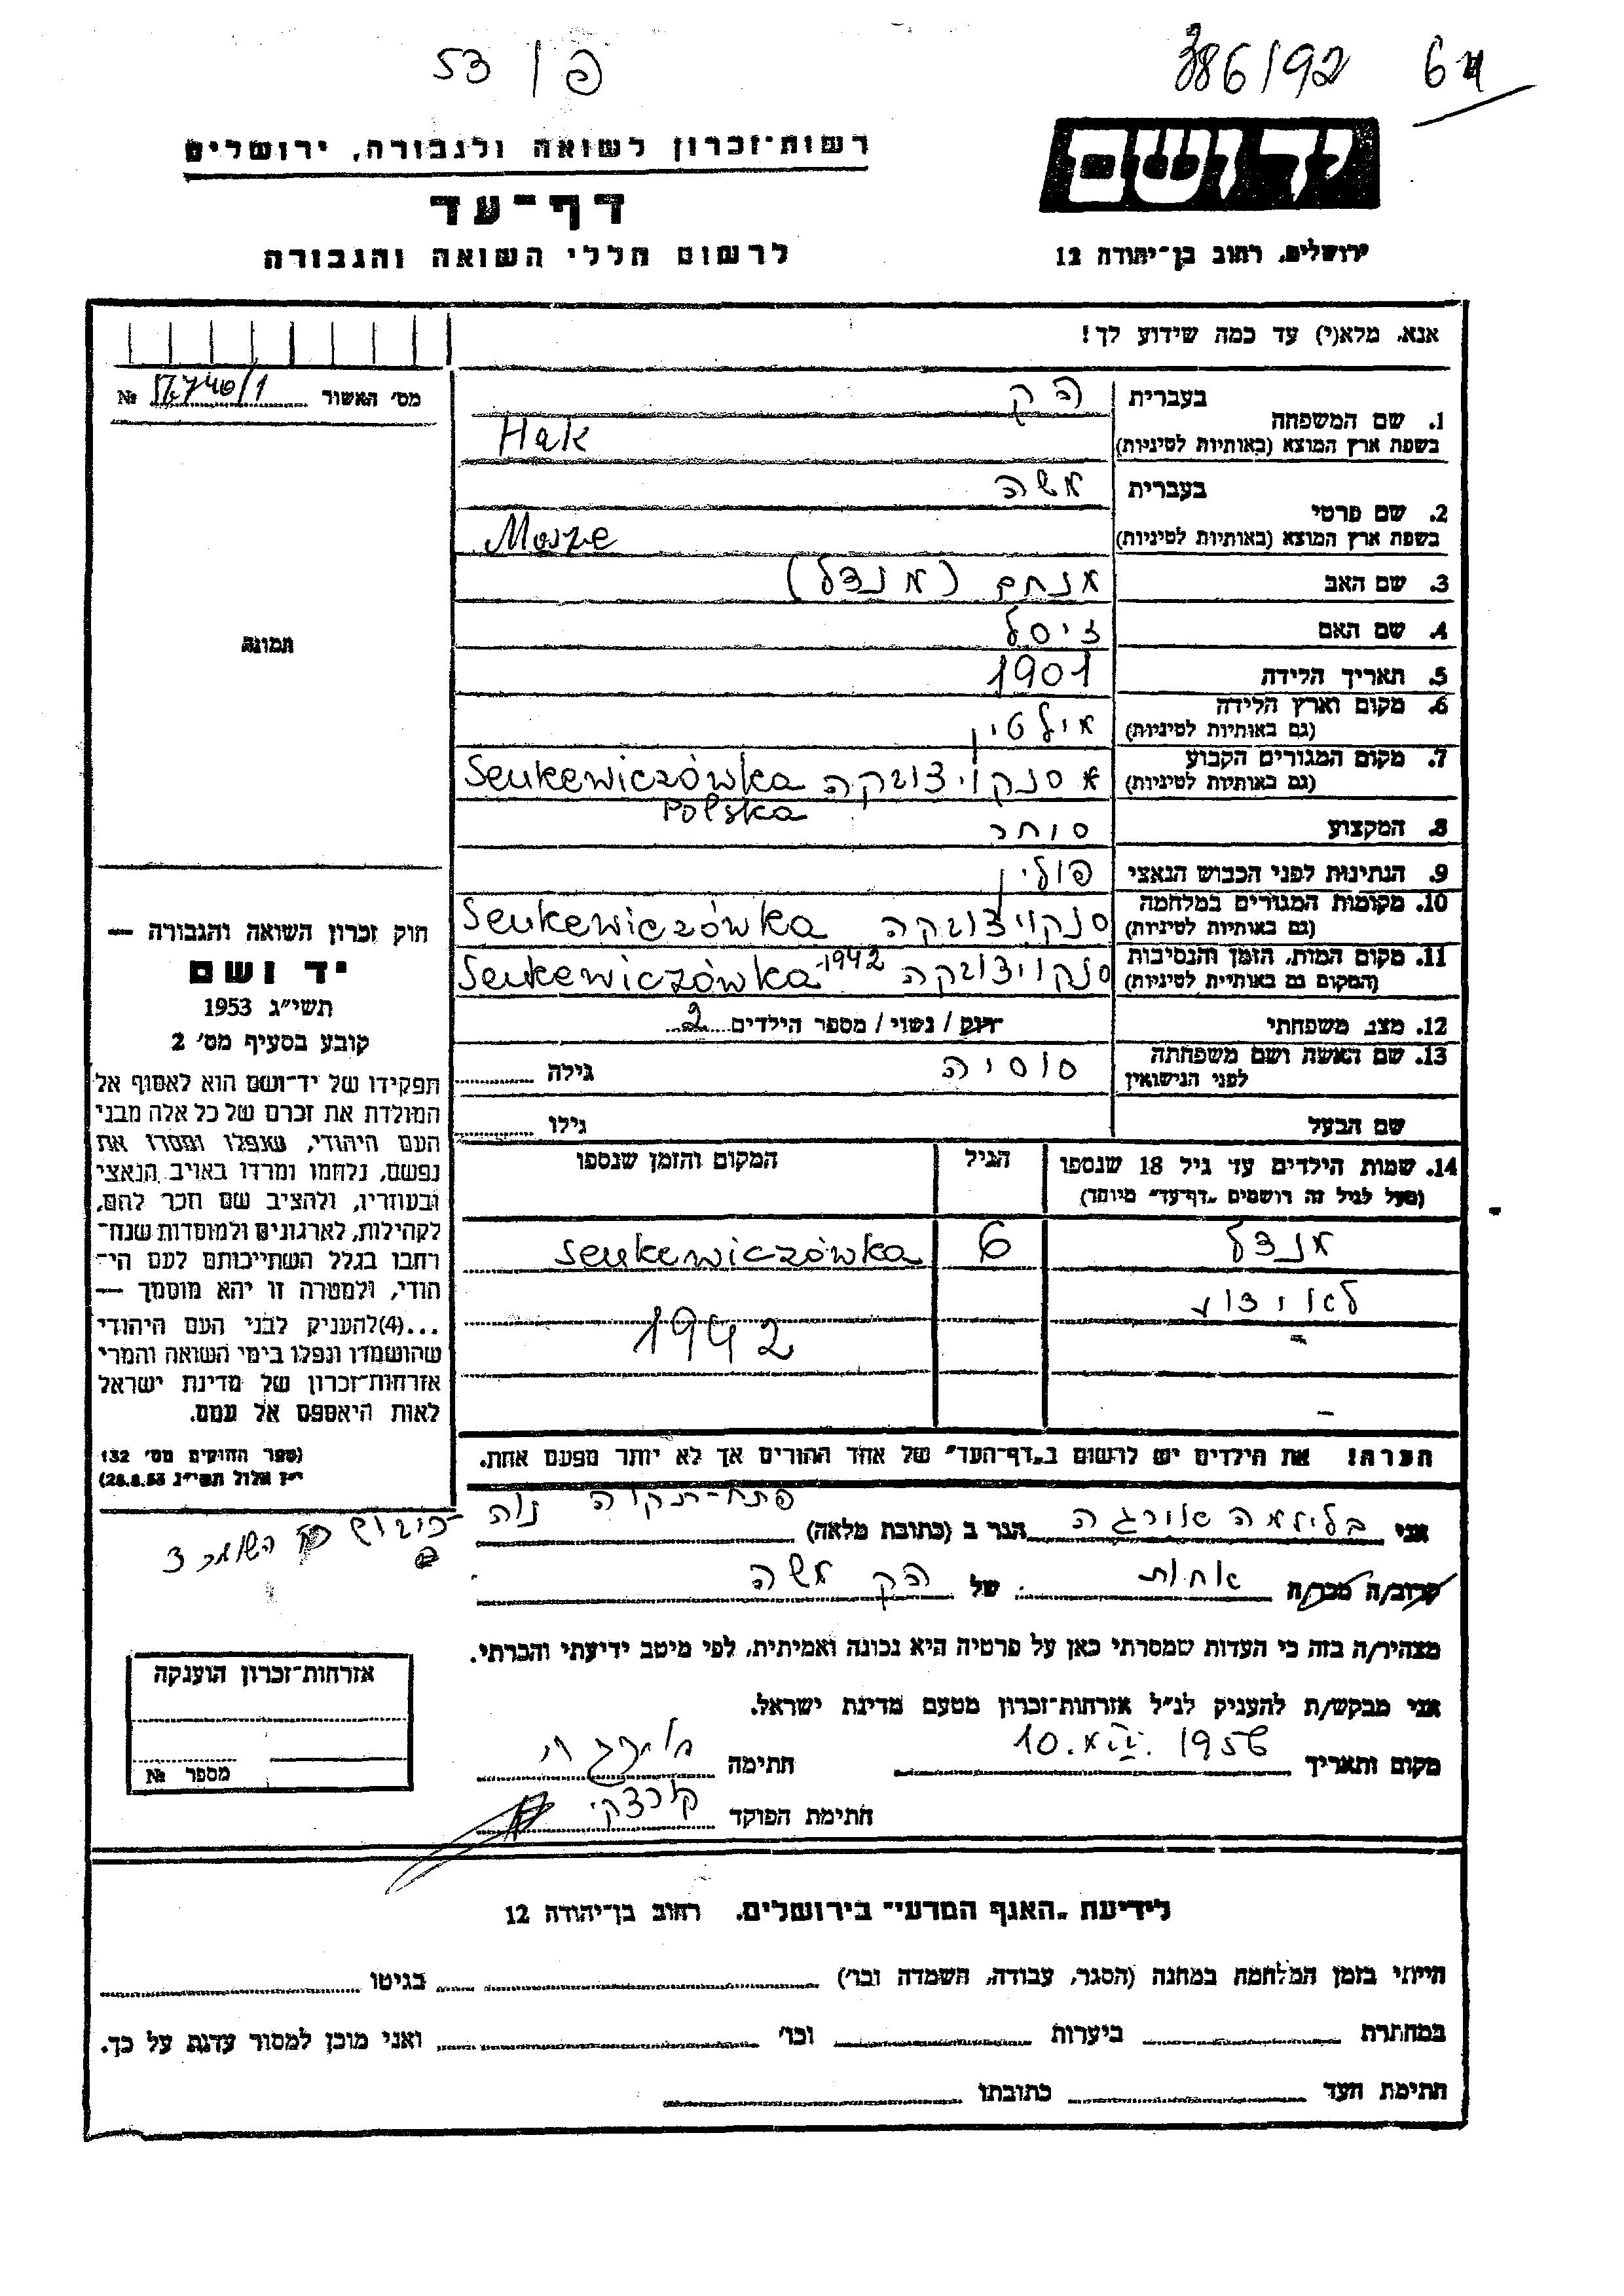 53 / פ
386/92 6
רשות־זכרון לשואה ולגבורה, ירושלים
דף־עד
לרשום חללי השואה והגבורה
יד ושם
ירושלים, רחוב בן־יהודה 12
אנא, מלא(י) עד כמה שידוע לך!
מס' האשור № /1
תמונה
1. שם המשפחה
בעברית הק
בשפת ארץ המוצא (באותיות לטיניות) Hak
2. שם פרטי
בעברית משה
בשפת ארץ המוצא (באותיות לטיניות) Mosze
3. שם האב מנחם (מנדל)
4. שם האם זיסל
5. תאריך הלידה 1901
6. מקום וארץ הלידה
(גם באותיות לטיניות) מילטין
7. מקום המגורים הקבוע
(גם באותיות לטיניות) סנקויצובקה Senkewiczówka
Polska
8. המקצוע סוחר
9. הנתינות לפני הכבוש הנאצי פולין
10. מקומות המגורים במלחמה
(גם באותיות לטיניות) סנקויצובקה Senkewiczówka
11. מקום המות, הזמן והנסיבות
(המקום גם באותיית לטיניות) סנקויצובקה 1942- Senkewiczówka
12. מצב משפחתי רווק / נשוי / מספר הילדים 2
13. שם האשה ושם משפחתה
לפני הנישואין סוסיה גילה
שם הבעל גילו
14. שמות הילדים עד גיל 18 שנספו
(מעל לגיל זה רושמים „דף־עד" מיוחד)
הגיל
המקום והזמן שנספו
מנדל 6 Senkewiczówka
1942
הערה! את הילדים יש לרשום ב„דף־העד" של אחד ההורים אך לא יותר מפעם אחת.
חוק זכרון השואה והגבורה —
יד ושם
תשי״ג 1953
קובע בסעיף מס' 2
תפקידו של יד־ושם הוא לאסוף אל
המולדת את זכרם של כל אלה מבני
העם היהודי, שנפלו ומסרו את
נפשם, נלחמו ומרדו באויב הנאצי
ובעוזריו, ולהציב שם וזכר להם,
לקהילות, לארגונים ולמוסדות שנח־
רחבו בגלל השתייכותם לעם הי־
הודי, ולמטרה זו יהא מוסמך —
...(4)להעניק לבני העם היהודי
שהושמדו ונפלו בימי השואה והמרי
אזרחות־זכרון של מדינת ישראל
לאות היאספם אל עמם.
(ספר החוקים מס' 132
י״ז אלול תשי״ג 28.8.53)
אני בלומה הגר ב (כתובת מלאה) פתח-תקוה נוה
השומר 3
קרוב/ה מכר/ה אחות של הק משה
מצהיר/ה בזה כי העדות שמסרתי כאן על פרטיה היא נכונה ואמיתית, לפי מיטב ידיעתי והכרתי.
אני מבקש/ת להעניק לנ״ל אזרחות־זכרון מטעם מדינת ישראל.
מקום ותאריך 10. 1956 חתימה
חתימת הפוקד
אזרחות־זכרון הוענקה
מספר №
לידיעת „האגף המדעי" בירושלים, רחוב בן־יהודה 12
הייתי בזמן המלחמה במחנה (הסגר, עבודה, השמדה וכו') בגיטו
במחתרת ביערות וכו' ואני מוכן למסור עדות על כך.
חתימת העד כתובתו